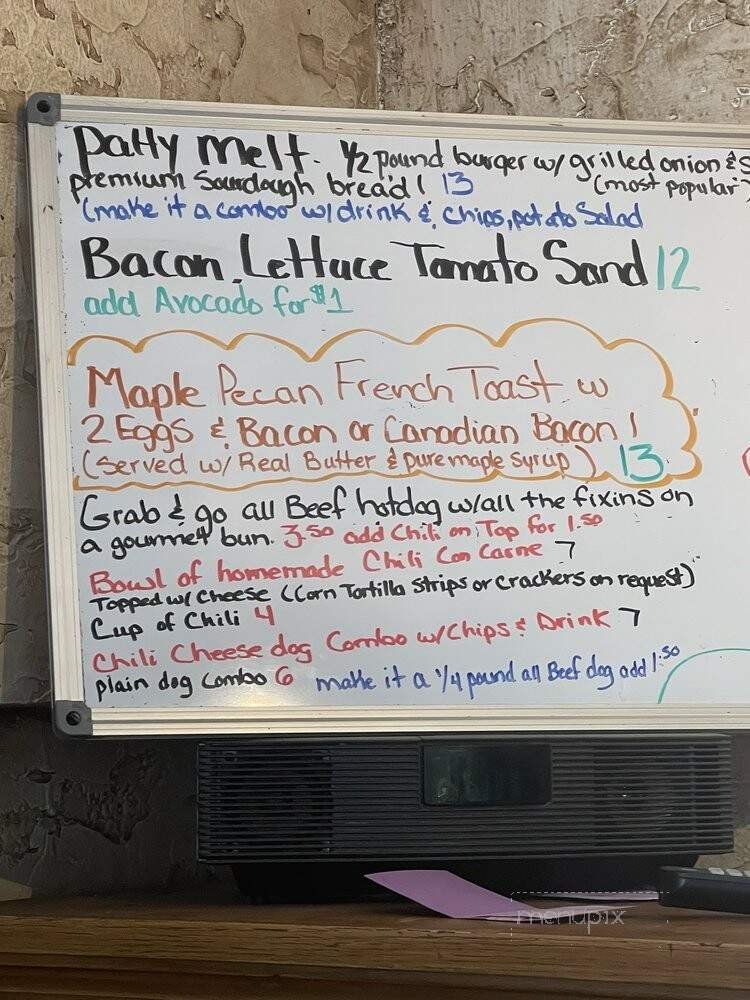 Patty Melt. 1/2 pound burger w/ grilled onion & S
premium Sourdough bread! 13 (most popular")
(make it a combo w/ drink & chips, potato Salad
Bacon Lettuce Tomato Sand 12
add Avocado for $1
Maple Pecan French Toast w
2 Eggs & Bacon or Canadian Bacon!
(Served w/ Real Butter & pure maple syrup) 13
Grab & go all Beef hotdog w/all the fixins on
a gourmet bun. 3.50 add Chili on Top for 1.50
Bowl of homemade Chili Con Carne 7
Topped w/ Cheese (Corn Tortilla Strips or Crackers on request)
Cup of Chili 4
Chili Cheese dog Combo w/Chips & Drink 7
plain dog Combo 6 make it a 1/4 pound all Beef dog add 1.50
menupix